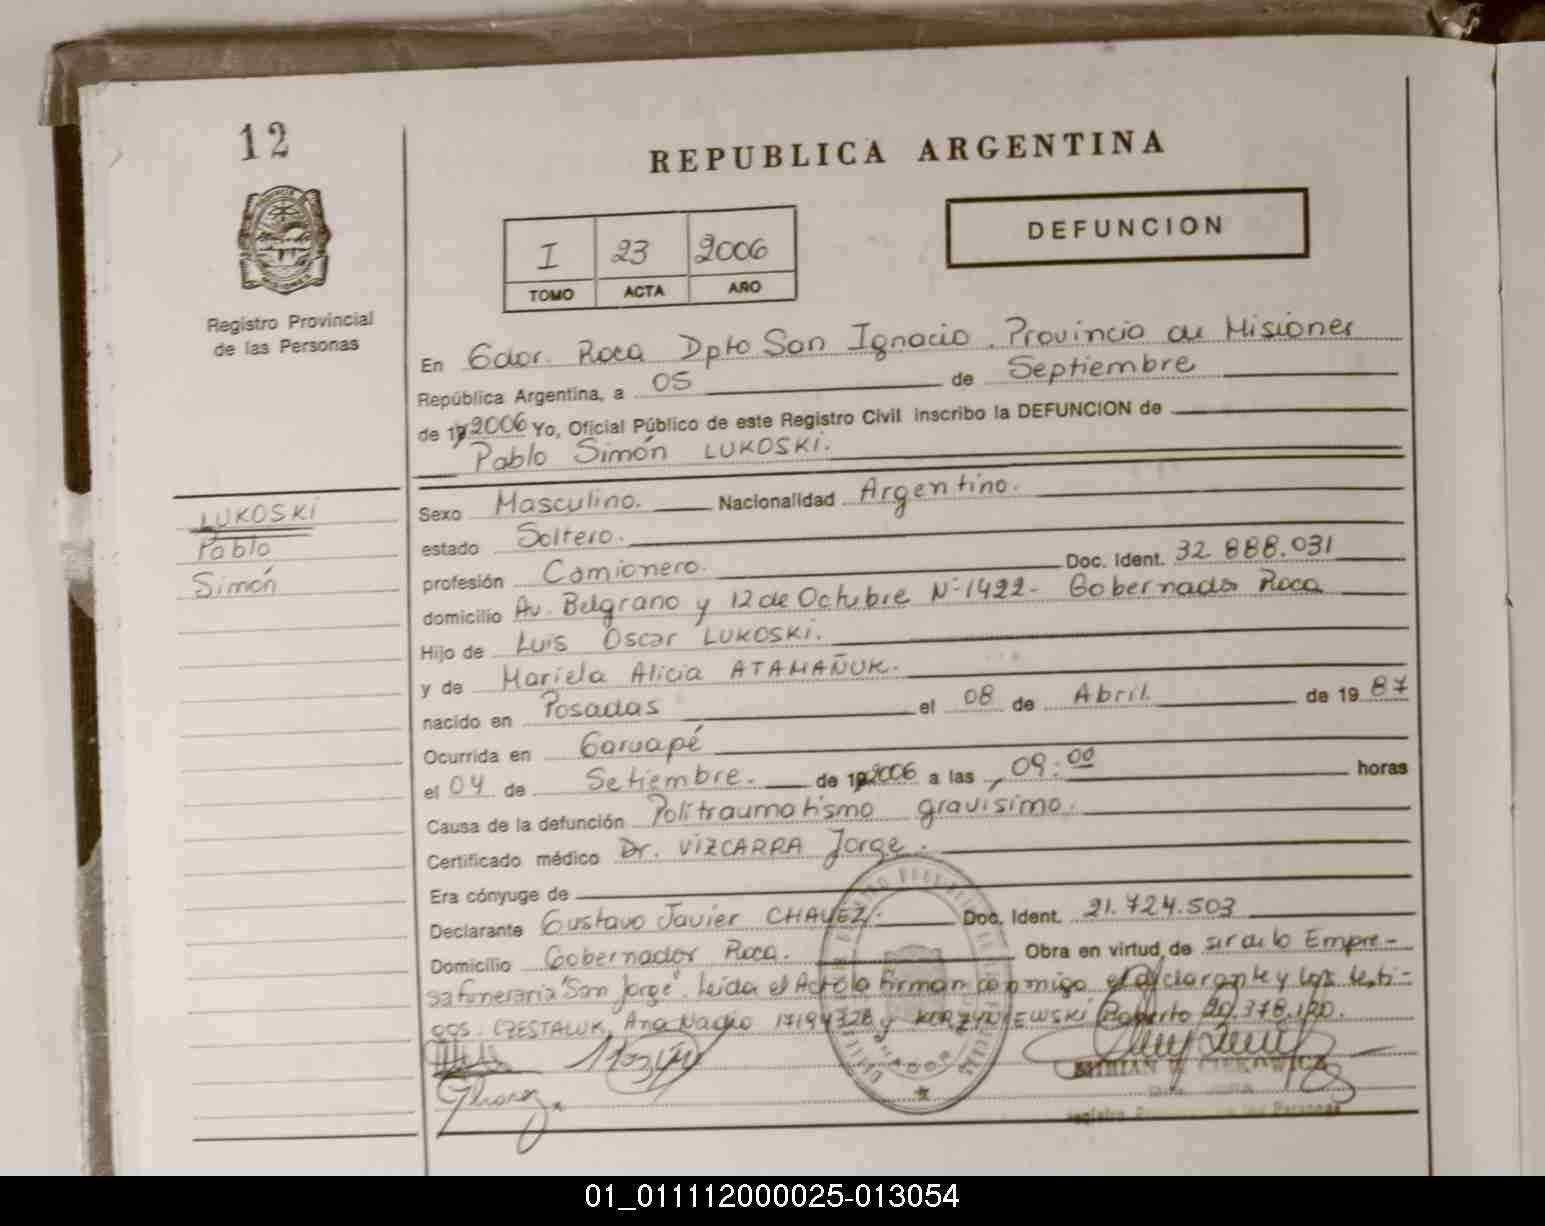 12
REPUBLICA ARGENTINA
DEFUNCION
I 23 2006
TOMO ACTA AÑO
Registro Provincial
de las Personas
En Gdor. Roca Dpto San Ignacio. Provincia de Misiones
República Argentina, a 05 de Septiembre
de 19 2006 Yo, Oficial Público de este Registro Civil inscribo la DEFUNCION de
Pablo Simón LUKOSKI.
LUKOSKI
Pablo
Simón
Sexo Masculino. Nacionalidad Argentino.
estado Soltero.
profesión Camionero. Doc. Ident. 32.888.031
domicilio Av. Belgrano y 12 de Octubre Nº 1422- Gobernador Roca
Hijo de Luis Oscar LUKOSKI.
y de Mariela Alicia ATAMAÑUK.
nacido en Posadas el 08 de Abril de 19 87
Ocurrida en Garuapé
el 04 de Setiembre. de 19 2006 a las 09:00 horas
Causa de la defunción Politraumatismo gravisimo.
Certificado médico Dr. VIZCARRA Jorge.
Era cónyuge de
Declarante Gustavo Javier CHAVEZ. Doc. Ident. 21.724.503
Domicilio Gobernador Roca. Obra en virtud de ser de la Empre-
sa funeraria "San Jorge". Leida el Acta la firman conmigo el declarante y los testi-
gos. CZESTALUK, Ana y Roberto 20.378.120.
MIRIAN
Registro de las Personas
01_011112000025-013054